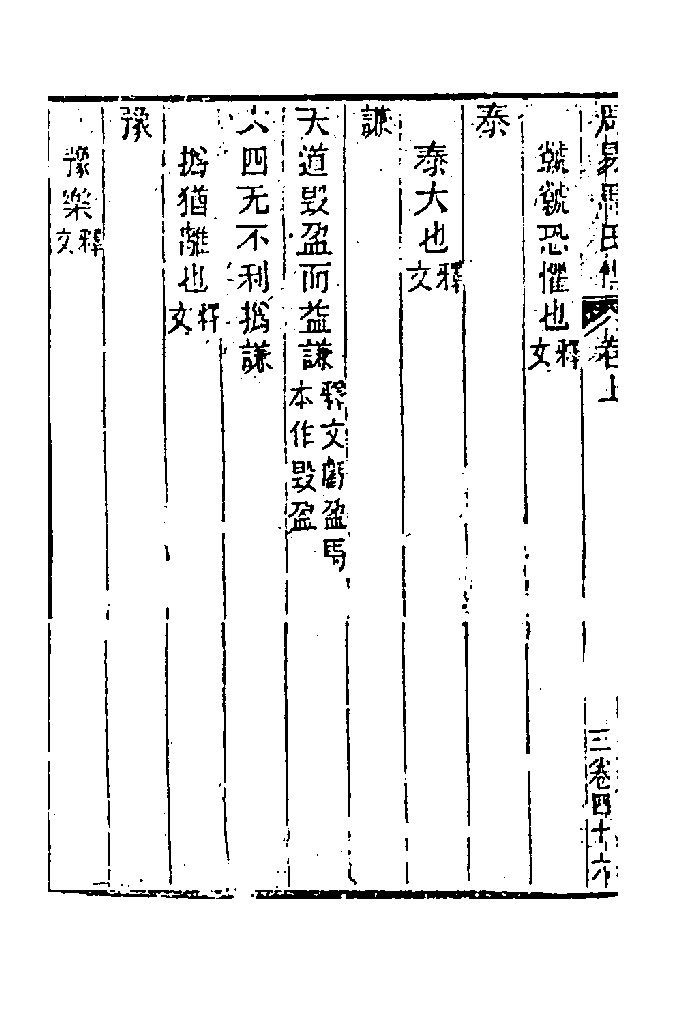 周易馬氏傳 卷上 三卷四十六
虩虩恐懼也釋文
泰
泰大也釋文
謙
天道毀盈而益謙釋文虧盈馬本作毀盈
六四无不利撝謙
撝猶離也釋文
豫
豫樂釋文